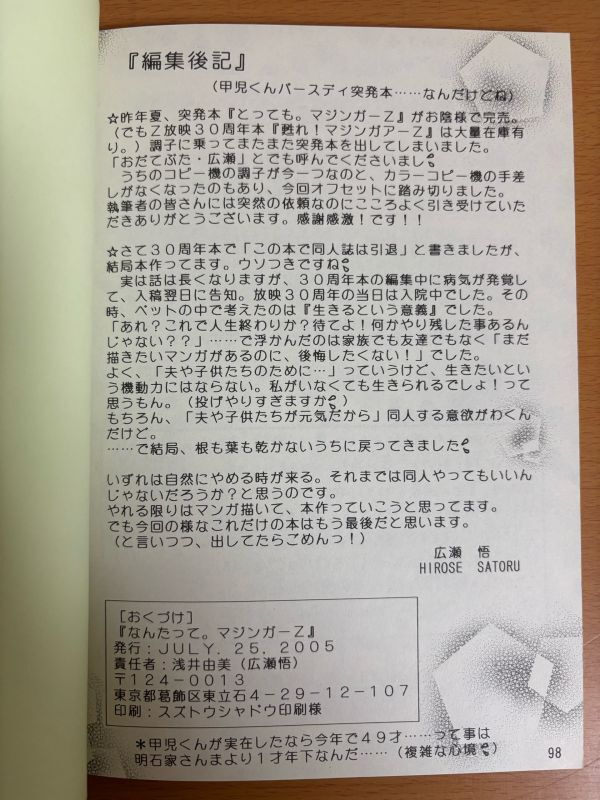 『編集後記』
（甲児くんバースディ突発本……なんだけどね）
☆昨年夏、突発本『とっても。マジンガーＺ』がお陰様で完売。
（でもＺ放映３０周年本『甦れ！マジンガアーＺ』は大量在庫有
り。）調子に乗ってまたまた突発本を出してしまいました。
「おだてぶた・広瀬」とでも呼んでくださいまし
うちのコピー機の調子が今一つなのと、カラーコピー機の手差
しがなくなったのもあり、今回オフセットに踏み切りました。
執筆者の皆さんには突然の依頼なのにこころよく引き受けていた
だきありがとうございます。感謝感激！です！！
☆さて３０周年本で「この本で同人誌は引退」と書きましたが、
結局本作ってます。ウソつきですね
実は話は長くなりますが、３０周年本の編集中に病気が発覚し
て、入稿翌日に告知。放映３０周年の当日は入院中でした。その
時、ベットの中で考えたのは『生きるという意義』でした。
「あれ？これで人生終わりか？待てよ！何かやり残した事あるん
じゃない？？」……で浮かんだのは家族でも友達でもなく「まだ
描きたいマンガがあるのに、後悔したくない！」でした。
よく、「夫や子供たちのために…」っていうけど、生きたいとい
う機動力にはならない。私がいなくても生きられるでしょ！って
思うもん。（投げやりすぎますか）
もちろん、「夫や子供たちが元気だから」同人する意欲がわくん
だけど。
……で結局、根も葉も乾かないうちに戻ってきました
いずれは自然にやめる時が来る。それまでは同人やってもいいん
じゃないだろうか？と思うのです。
やれる限りはマンガ描いて、本作っていこうと思ってます。
でも今回の様なこれだけの本はもう最後だと思います。
（と言いつつ、出してたらごめんっ！）
広瀬　悟
HIROSE SATORU
［おくづけ］
『なんたって。マジンガーＺ』
発行：ＪＵＬＹ．２５，２００５
責任者：浅井由美（広瀬悟）
〒１２４－００１３
東京都葛飾区東立石４－２９－１２－１０７
印刷：スズトウシャドウ印刷様
＊甲児くんが実在したなら今年で４９才……って事は
明石家さんまより１才年下なんだ……（複雑な心境）
98